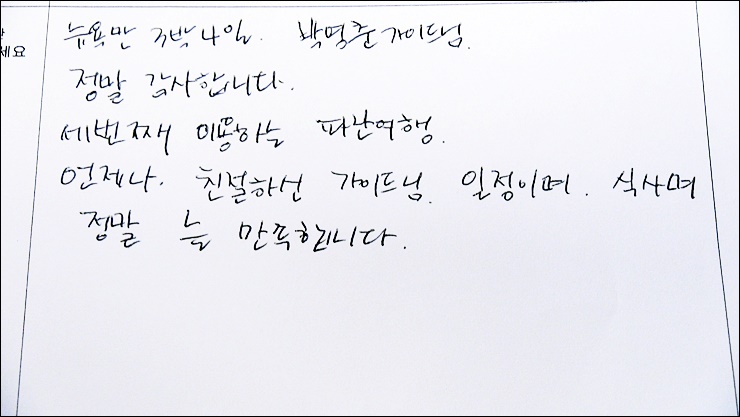 뉴욕만 3박4일. 박명준가이드님.
정말 감사합니다.
세번째 이용하는 파란여행.
언제나. 친절하신 가이드님. 일정이며. 식사며
정말 늘 만족합니다.
세요